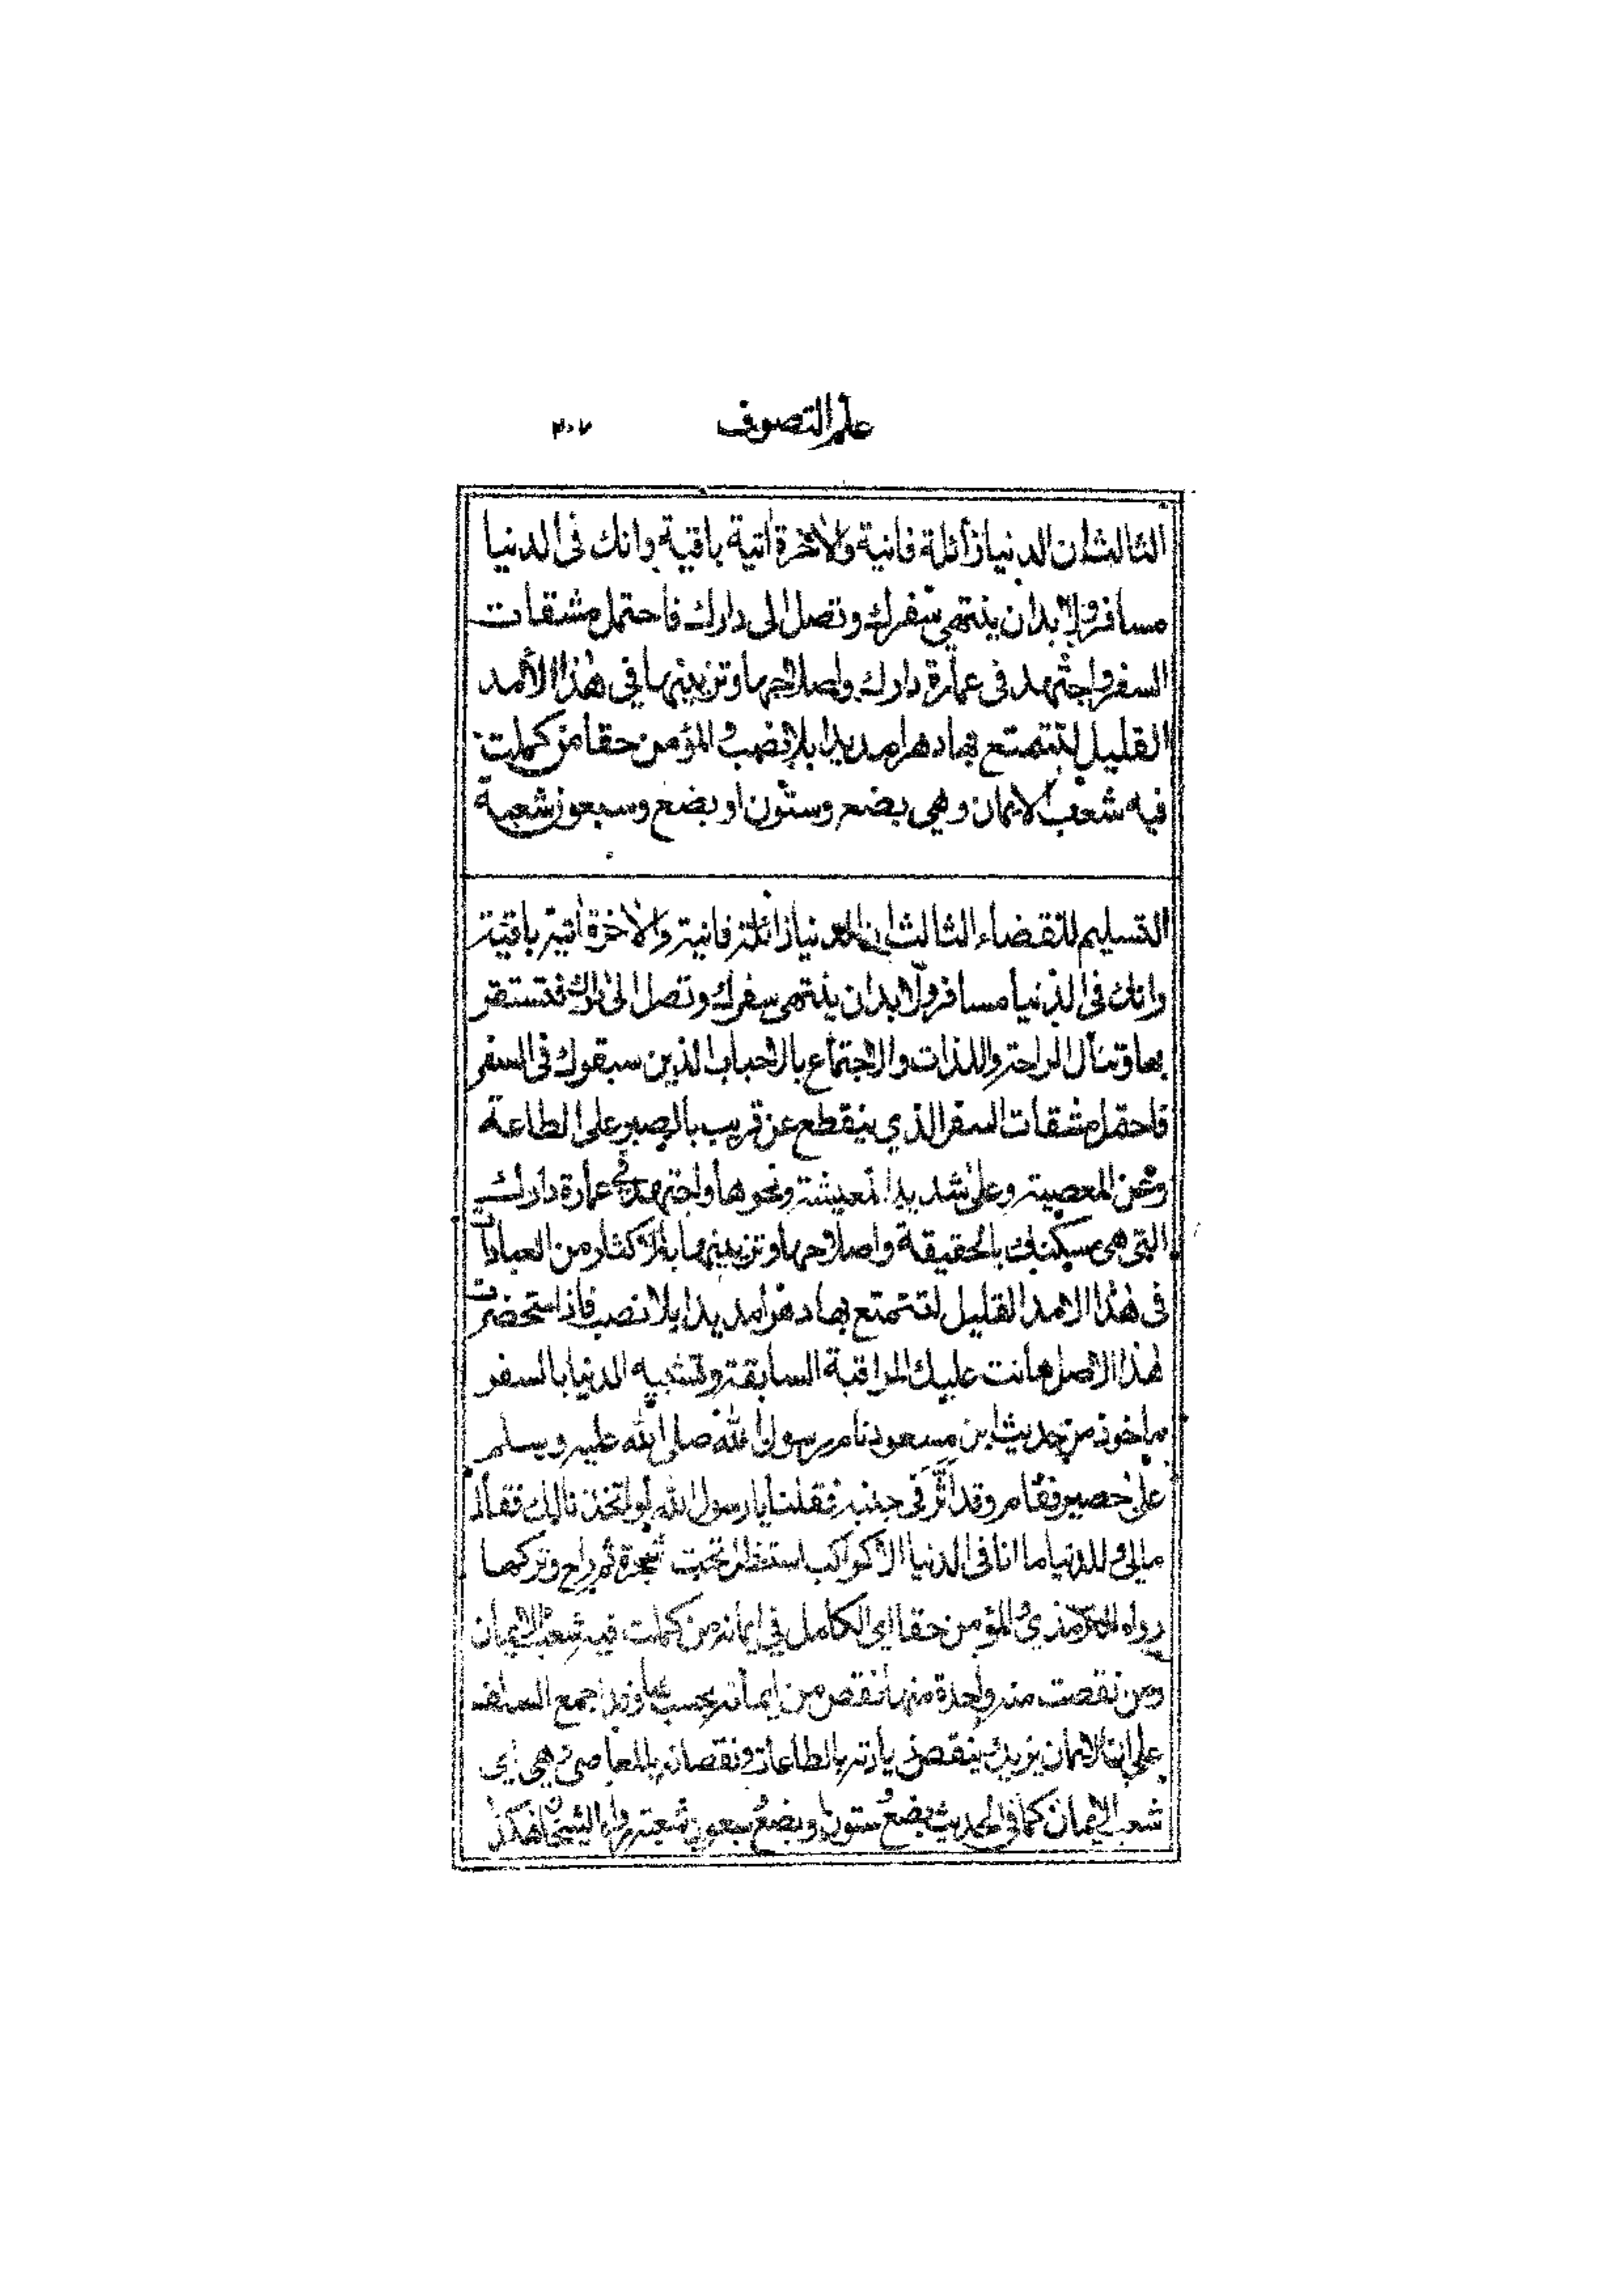 علم التصوف
الثالث ان الدنيا زائلة فانية والاخرة اتية باقية وانك فى الدنيا
مسافر ولا بد ان ينتهى سفرك وتصل الى دارك فاحتمل مشقات
السفر واجتهد فى عمارة دارك واصلاحها وتزيينها فى هذا الأمد
القليل لتتمتع بها دهرا مديدا بلا نصب والمؤمن حقا من كملت
فيه شعب الايمان وهى بضع وستون او بضع وسبعون شعبة
التسليم للقضاء الثالث ان الدنيا زائلة فانية والاخرة اتية باقية
وانك فى الدنيا مسافر ولا بد ان ينتهى سفرك وتصل الى دارك فتستقر
بها وتنال الراحة واللذات والاجتماع بالاحباب الذين سبقوك فى السفر
فاحتمل مشقات السفر الذي ينقطع عن قريب بالصبر على الطاعة
وعن المعصية وعلى شديد المعيشة ونحوها واجتهد فى عمارة دارك
التى هى مسكنك بالحقيقة واصلاحها وتزيينها بالاكثار من العبادات
فى هذا الامد القليل لتتمتع بها دهرا مديدا بلا نصب فاذا استحضرت
هذا الاصل هانت عليك المراقبة السابقة وتشبيه الدنيا بالسفر
ماخوذ من حديث ابن مسعود نام رسول الله صلى الله عليه وسلم
على حصير فقام وقد اثَّر فى جنبه فقلنا يا رسول الله لو اتخذنا لك فقال
مالى وللدنيا ما انا فى الدنيا الا كراكب استظل تحت شجرة ثم راح وتركها
رواه الترمذي والمؤمن حقا اى الكامل فى ايمانه من كملت فيه شعب الايمان
ومن نقصت منه واحدة منها نقص من ايمانه بحسبها وقد اجمع السلف
على ان الايمان يزيد وينقص زيادته بالطاعات ونقصانه بالمعاصى وهى اى
شعب الايمان كما فى الحديث بضع وستون او بضع وسبعون شعبة رواه الشيخان هكذا